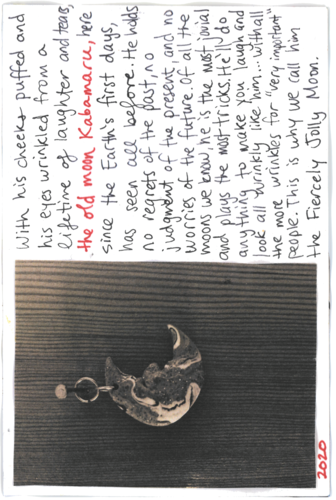 With his cheeks puffed and
his eyes wrinkled from a
lifetime of laughter and tears,
the old moon Kabamaru, here
since the Earth's first days,
has seen all before. He holds
no regrets of the past, no
judgment of the present, and no
worries of the future. Of all the
moons we know he is the most jovial
and plays the most tricks. He'll do
anything to make you laugh and
look all wrinkly like him... with all
the more wrinkles for "very important"
people. This is why we call him
the Fiercely Jolly Moon.
2020